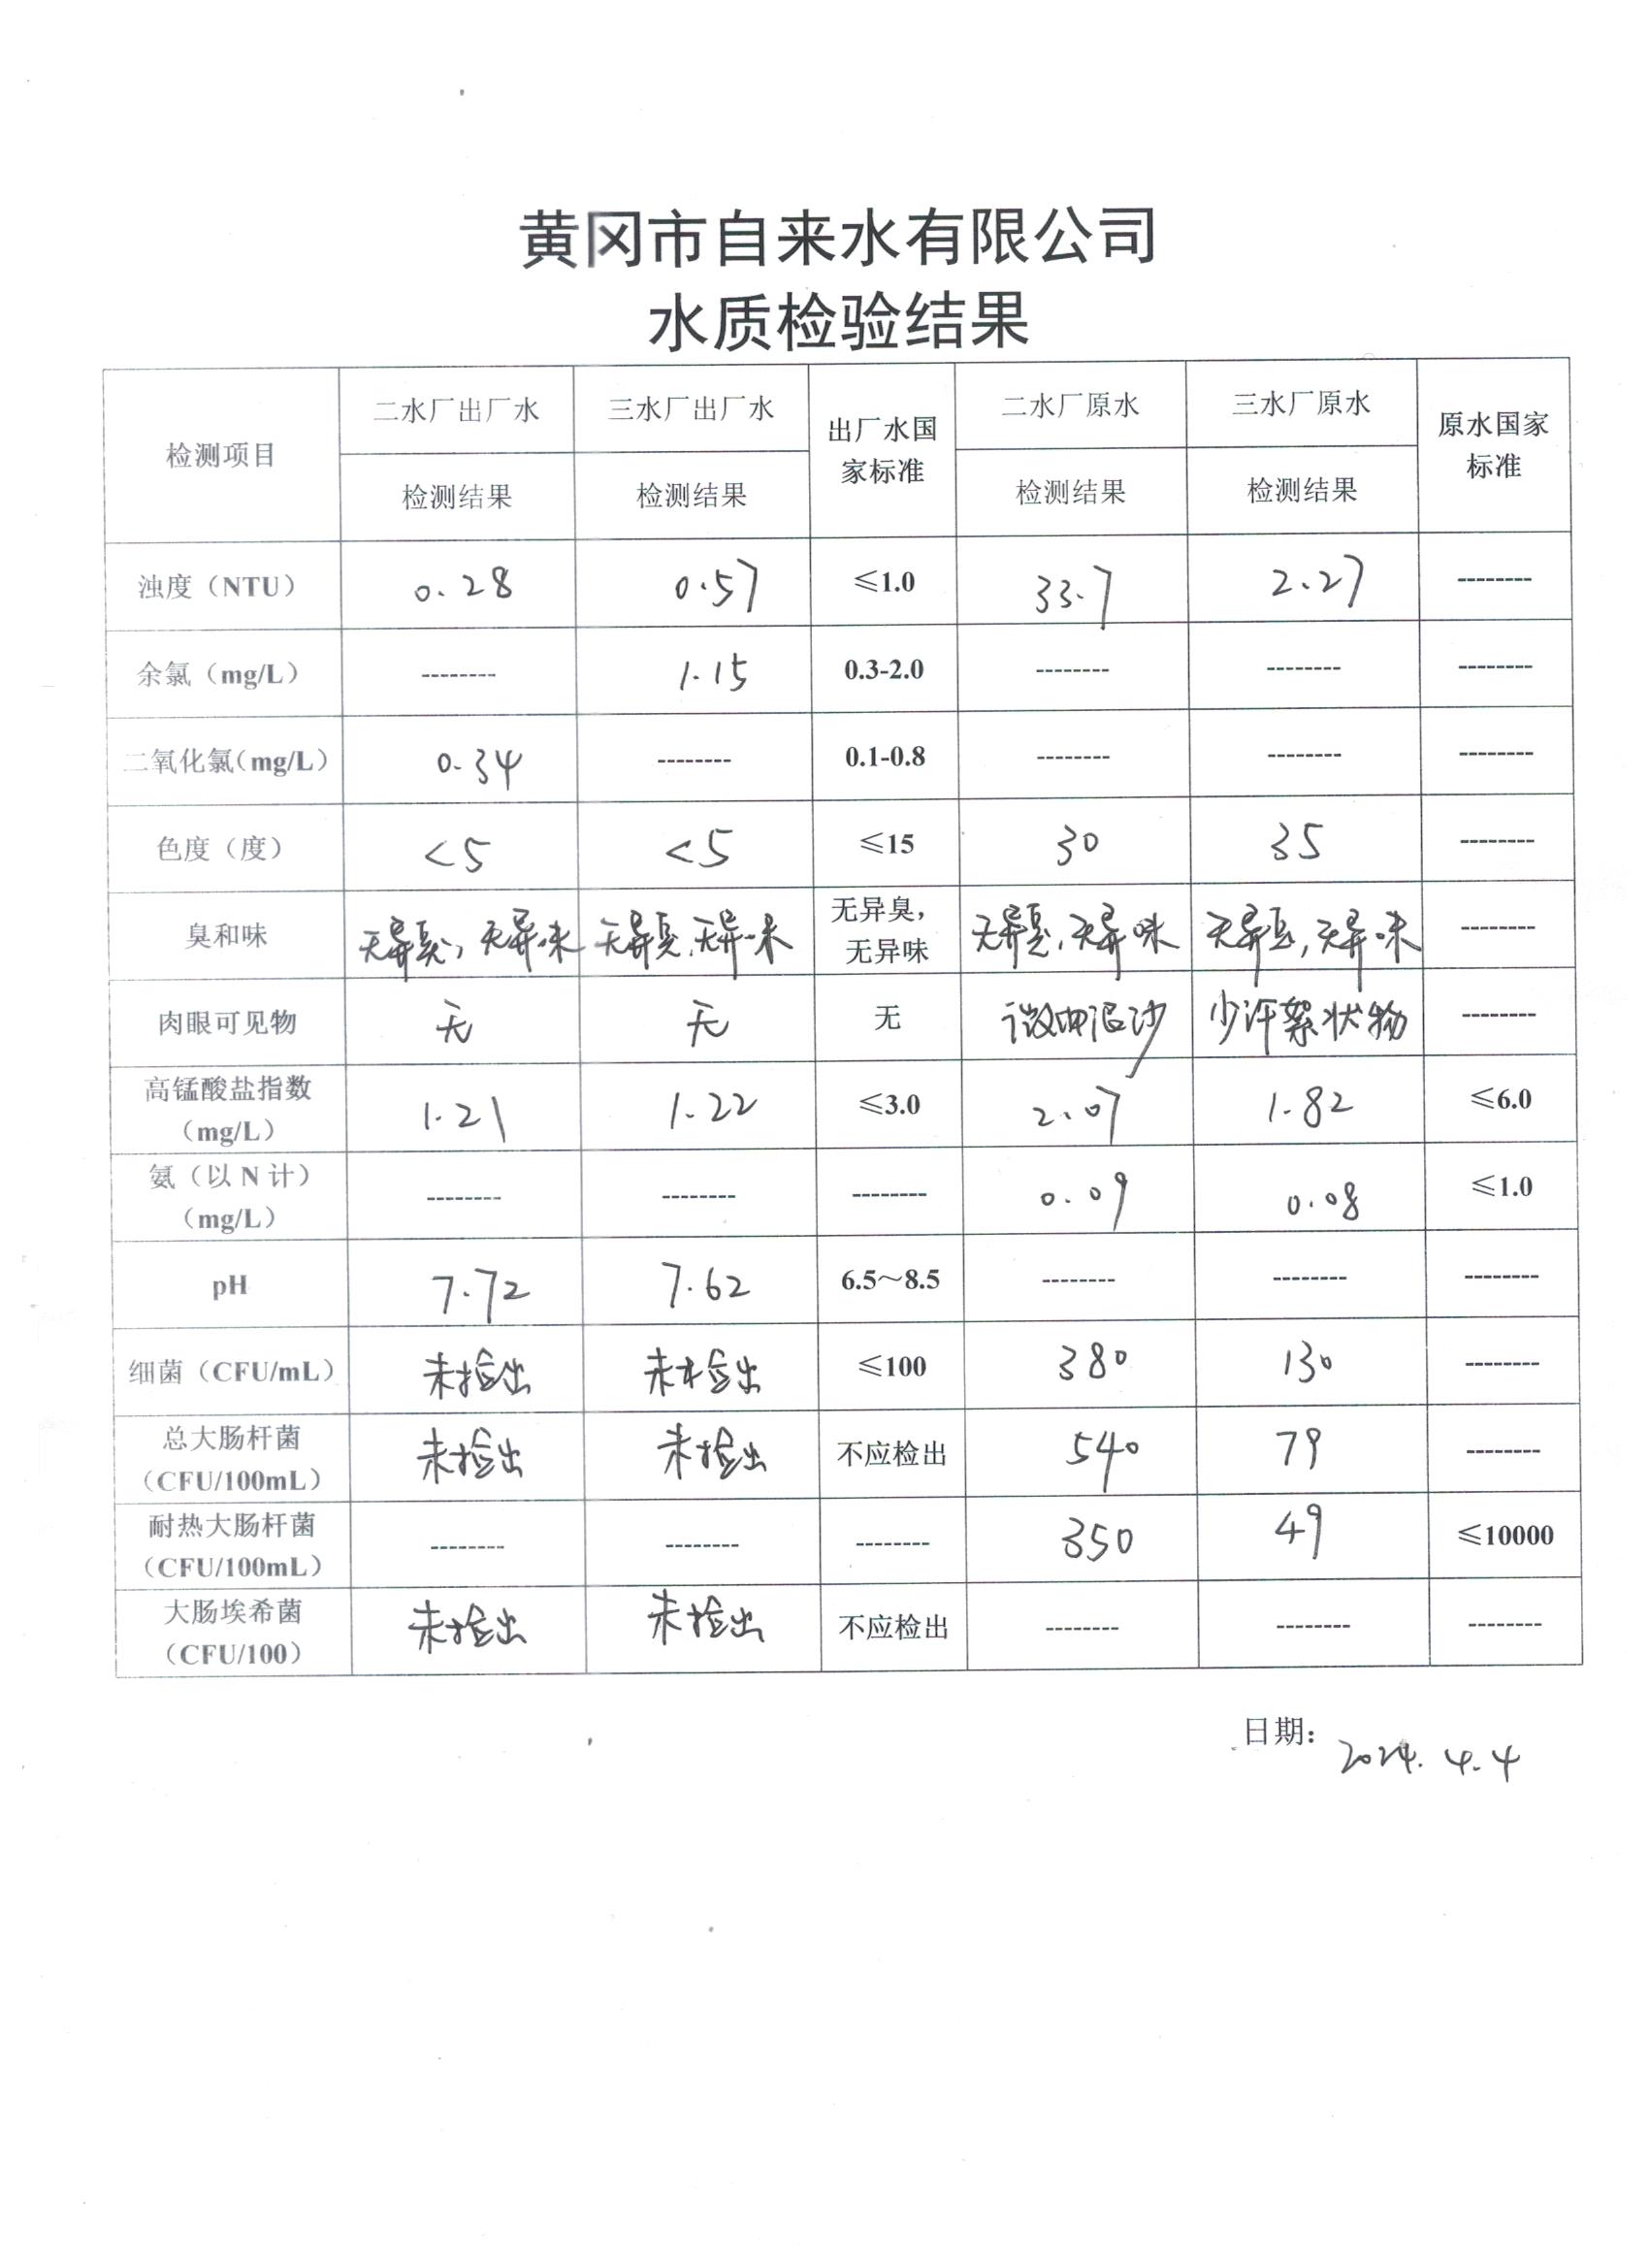 黄冈市自来水有限公司
水质检验结果
检测项目 二水厂出厂水 三水厂出厂水 出厂水国家标准 二水厂原水 三水厂原水 原水国家标准
检测结果 检测结果 检测结果 检测结果
浊度（NTU） 0.28 0.57 ≤1.0 33.7 2.27 --------
余氯（mg/L） -------- 1.15 0.3-2.0 -------- -------- --------
二氧化氯（mg/L） 0.34 -------- 0.1-0.8 -------- -------- --------
色度（度） <5 <5 ≤15 30 35 --------
臭和味 无异臭，无异味 无异臭，无异味 无异臭，无异味 无异臭，无异味 无异臭，无异味 --------
肉眼可见物 无 无 无 微细泥沙 少许絮状物 --------
高锰酸盐指数（mg/L） 1.21 1.22 ≤3.0 2.07 1.82 ≤6.0
氨（以N计）（mg/L） -------- -------- -------- 0.09 0.08 ≤1.0
pH 7.72 7.62 6.5～8.5 -------- -------- --------
细菌（CFU/mL） 未检出 未检出 ≤100 380 130 --------
总大肠杆菌（CFU/100mL） 未检出 未检出 不应检出 540 79 --------
耐热大肠杆菌（CFU/100mL） -------- -------- -------- 350 49 ≤10000
大肠埃希菌（CFU/100） 未检出 未检出 不应检出 -------- -------- --------
日期： 2024.4.4